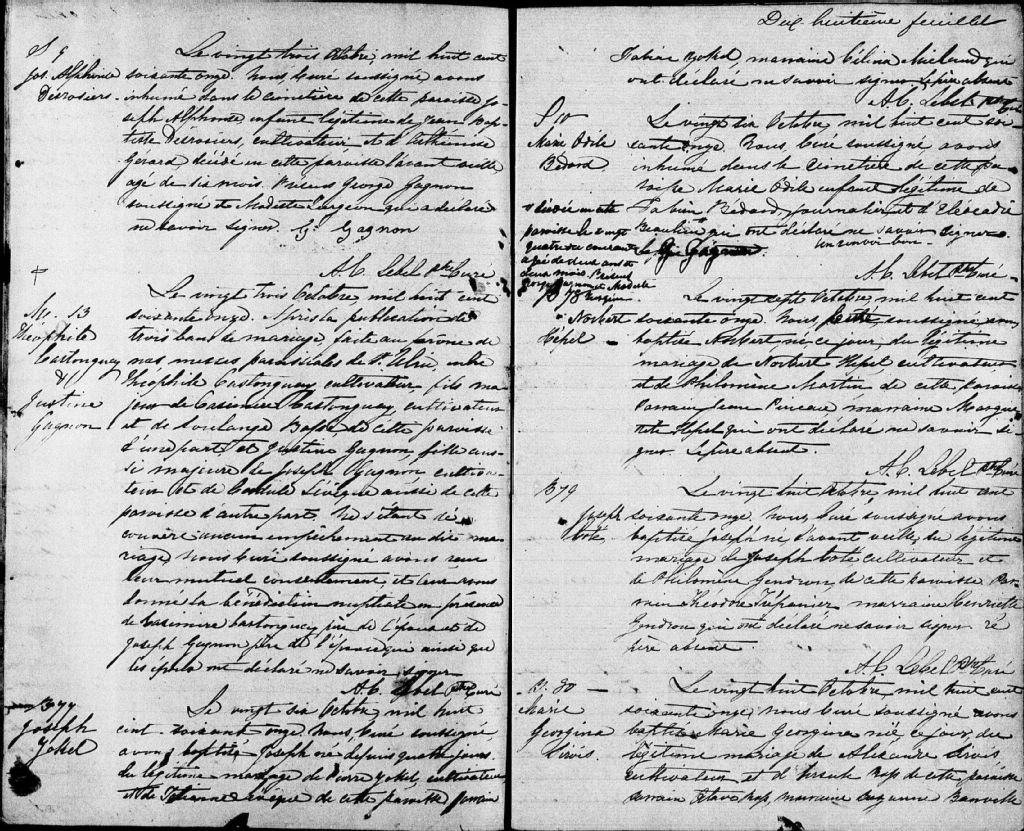 S 9
Jos. Alphonse
Désrosiers.
Le vingt trois Octobre, mil huit cent
soixante onze. Nous Curé soussigné avons
inhumé dans le cimetière de cette paroisse Jo-
seph Alphonse enfant légitime de Jean Bap-
tiste Désrosiers, cultivateur et d'Arthémise
Gerard décédé en cette paroisse l'avant veille
agé de six mois. Présens George Gagnon
soussigné et Modeste Turgeon qui a déclaré
ne savoir signer. G. Gagnon
A. C. Lebel Ptre Curé
M. 13
Théophile
Castonguay
&
Justine
Gagnon
Le vingt trois Octobre, mil huit cent
soixante onze. Après la publication de
trois bans de mariage, faite au prone de
nos messes paroissiales de St. Ulric, entre
Théophile Castonguay cultivateur, fils ma-
jeur de Casimire Castonguay, cultivateur
et de Soulange de cette paroisse
d'une part; et Justine Gagnon, fille aus-
si majeure de Joseph Gagnon cultiva-
teur et de Lévêque aussi de cette
paroisse d'autre part. Ne s'étant dé-
couvert aucun empêchement au dit ma-
riage, Nous Curé soussigné avons reçu
leur mutuel consentement, et leur avons
donné la bénédiction nuptiale en présence
de Casimire Castonguay, père de l'époux et de
Joseph Gagnon père de l'épouse qui ainsi que
les époux ont déclaré ne savoir signer
A. C. Lebel Ptre Curé
B 77
Joseph
Yokel
Le vingt six Octobre, mil huit
cent soixante onze. Nous, Curé soussigné,
avons baptisé Joseph né depuis quatre jours
du légitime mariage de Pierre Yokel, cultivateur
et de de cette paroisse parrain
Dix huitième feuillet
Fabien Yokel, marraine Célina Michaud qui
ont déclaré ne savoir signer Le père absent
A. C. Lebel Ptre Curé
S 10
Marie Odile
Bédard
Le vingt six Octobre, mil huit cent soi-
xante onze. Nous, Curé soussigné avons
inhumé dans le cimetière de cette pa-
roisse Marie Odile enfant légitime de
Fabien Bédard, journalier et d'Eléocadie
Beaulieu qui ont déclaré ne savoir signer.
G. Gagnon un renvoi bon.
décédée en cette
paroisse le vingt
quatre du courant
agée de deux ans et
deux mois. Présens
George Gagnon et Modeste
Turgeon
A. C. Lebel Ptre Curé
B 78
Norbert
Hepel
Le vingt sept Octobre, mil huit cent
soixante onze. Nous soussigné avons
baptisé Norbert né ce jour, du légitime
mariage de Norbert Hepel cultivateur
et de Philomène Martin de cette paroisse
Parrain Jean Pineau marraine Margue-
rite Hepel qui ont déclaré ne savoir si-
gner. Le père absent.
A. C. Lebel Ptre Curé
B 79
Joseph
Coté
Le vingt huit Octobre, mil huit cent
soixante onze. Nous, Curé soussigné avons
baptisé Joseph né l'avant veille, du légitime
mariage de Joseph Coté cultivateur et
de Philomène Gendron, de cette paroisse Par-
rain Théodore Trépanier, marraine Henriette
Gendron qui ont déclaré ne savoir signer. Le
père absent.
A. C. Lebel Ptre Curé
B. 80
Marie
Georgina
Sirois
Le vingt huit Octobre, mil huit cent
soixante onze, nous Curé soussigné avons
baptisé Marie Georgina née ce jour, du
légitime mariage de Alexandre Sirois
cultivateur et d'Ursule Ross de cette paroisse
parrain Octave Ross, marraine Suzanne Banville